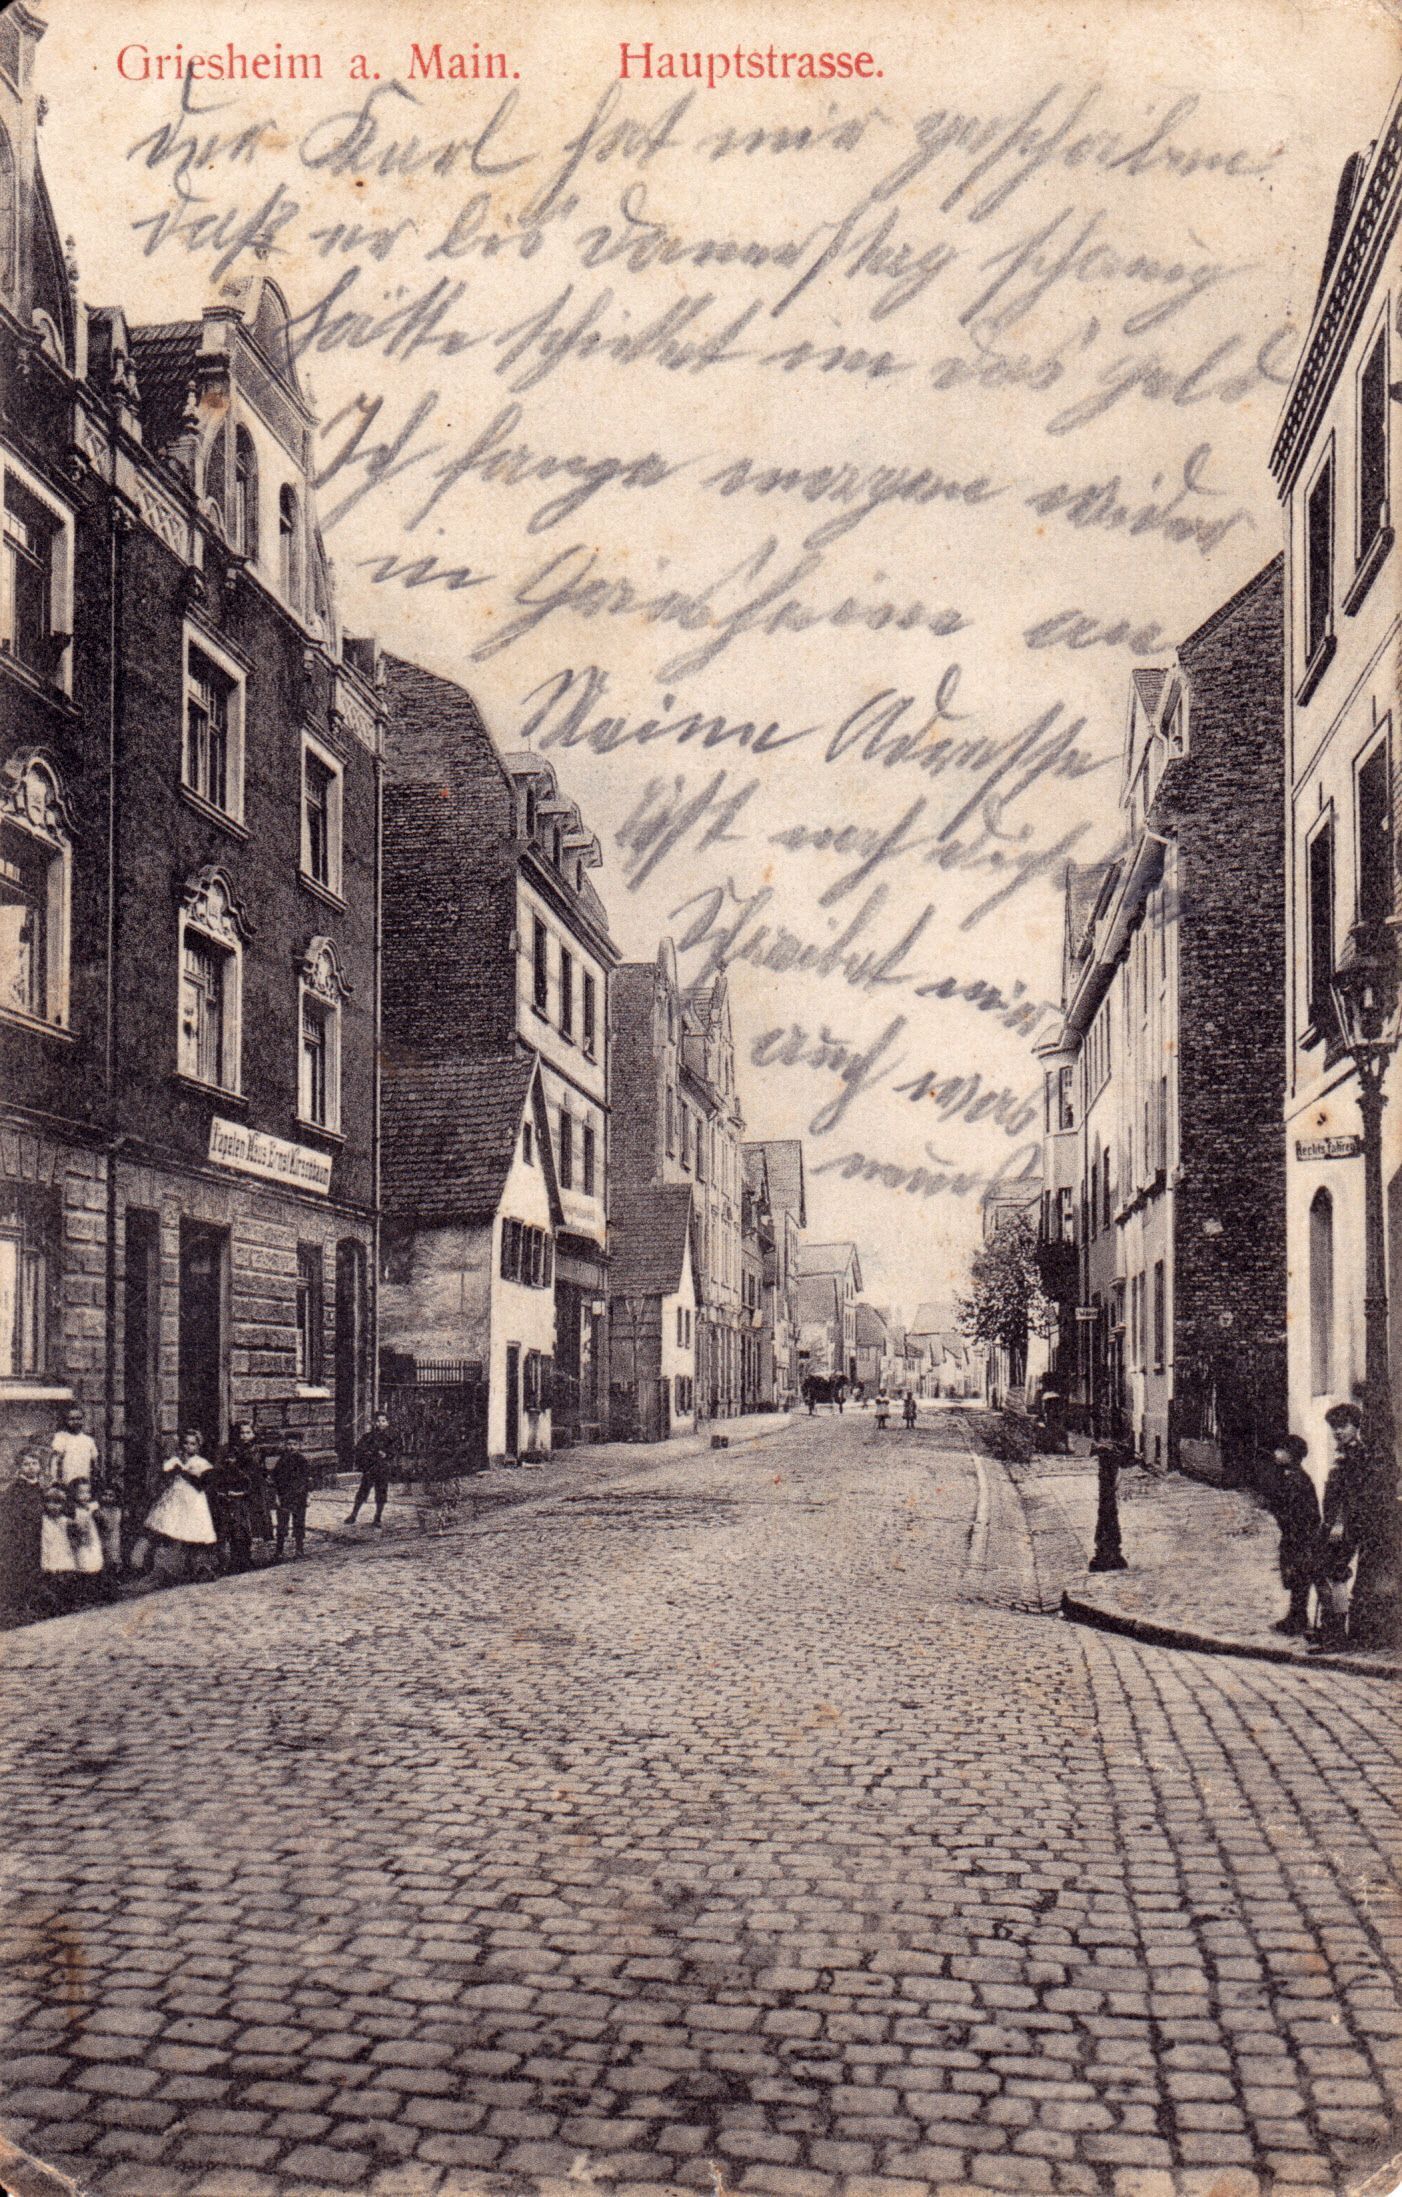 Griesheim a. Main. Hauptstrasse.
der Karl hat mir geschriben
daß er bis Donnerstag
hätte schicket im das Geld
Ich fange morgen wider
in Griesheim an
Meine Adresse
ist noch
Schreibet mir
auch was
neues
Tapeten Haus Ernst Kirschbaum
Rechts Fahren